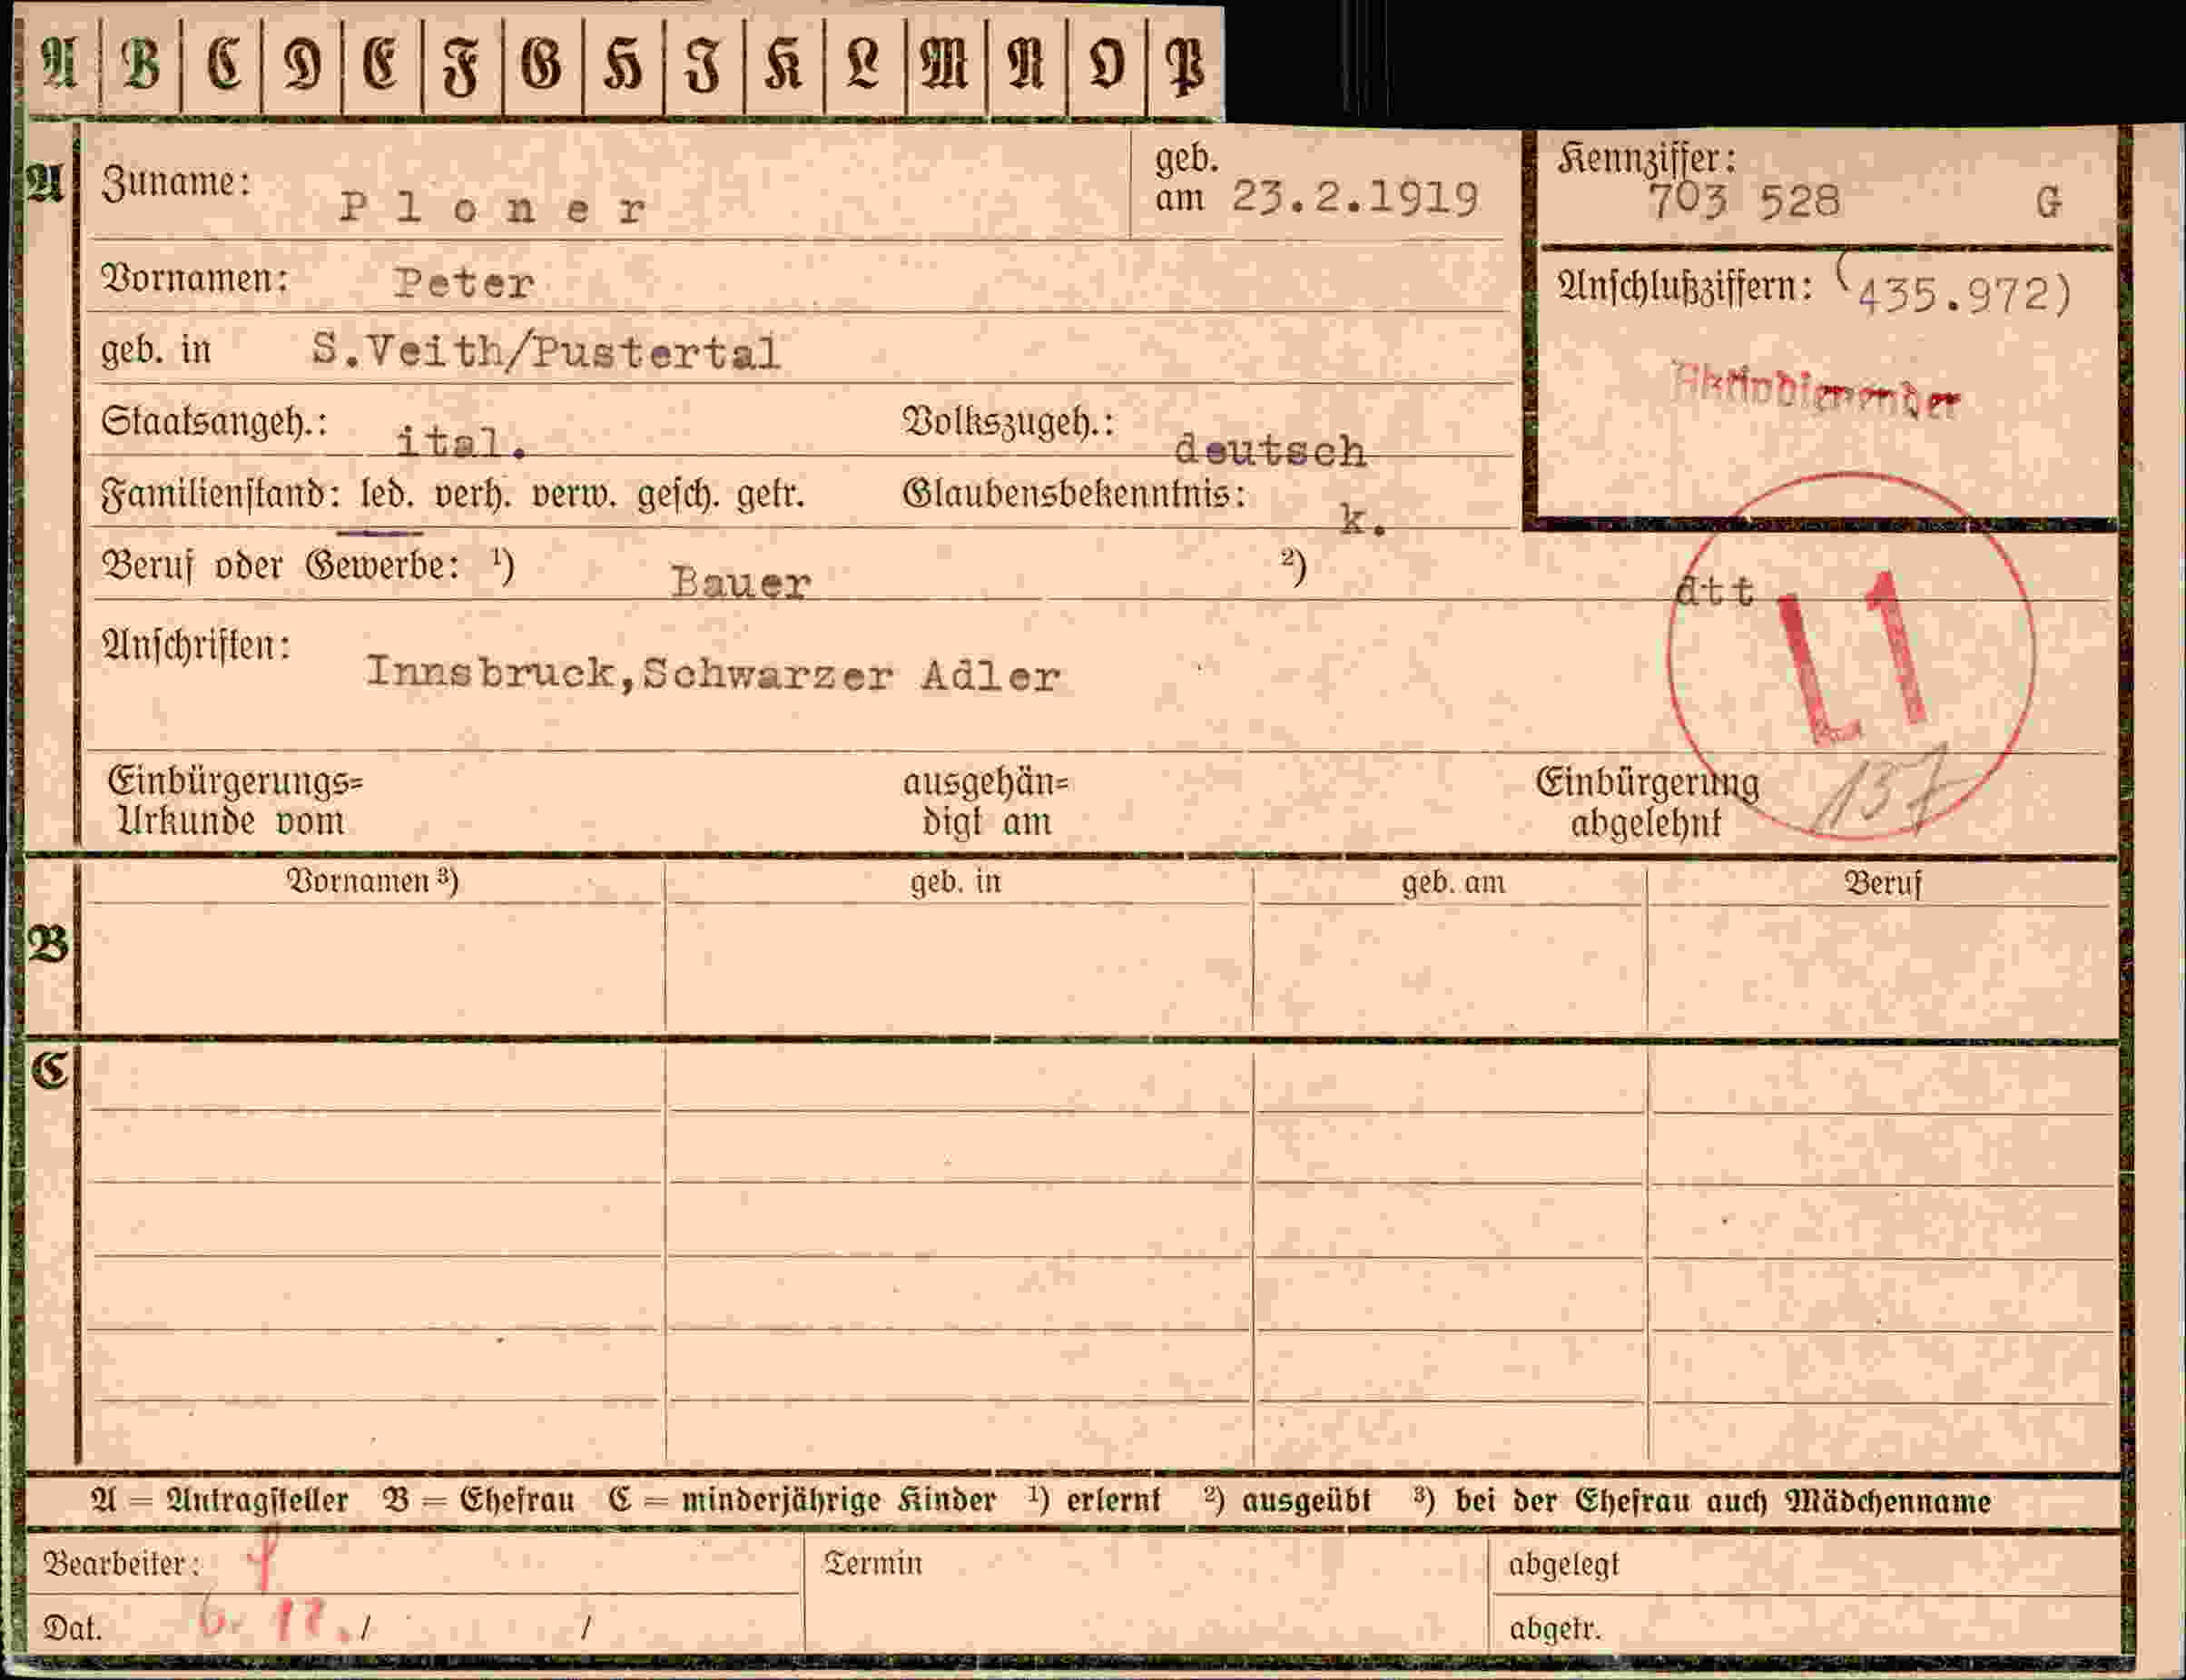 A B C D E F G H I K L M N O P
A Zuname: Ploner geb. am 23.2.1919
Kennziffer: 703 528 G
Vornamen: Peter
Anschlußziffern: (435.972)
geb. in S.Veith/Pustertal
Staatsangeh.: ital. Volkszugeh.: deutsch
Familienstand: led. verh. verw. gesch. getr. Glaubensbekenntnis: k.
Beruf oder Gewerbe: ¹) Bauer ²) att
L1
Anschriften: Innsbruck,Schwarzer Adler
137
Einbürgerungs= ausgehän= Einbürgerung
Urkunde vom digt am abgelehnt
Vornamen ³) geb. in geb. am Beruf
B
C
A = Antragsteller B = Ehefrau C = minderjährige Kinder ¹) erlernt ²) ausgeübt ³) bei der Ehefrau auch Mädchenname
Bearbeiter: Termin abgelegt
Dat. / / abgetr.